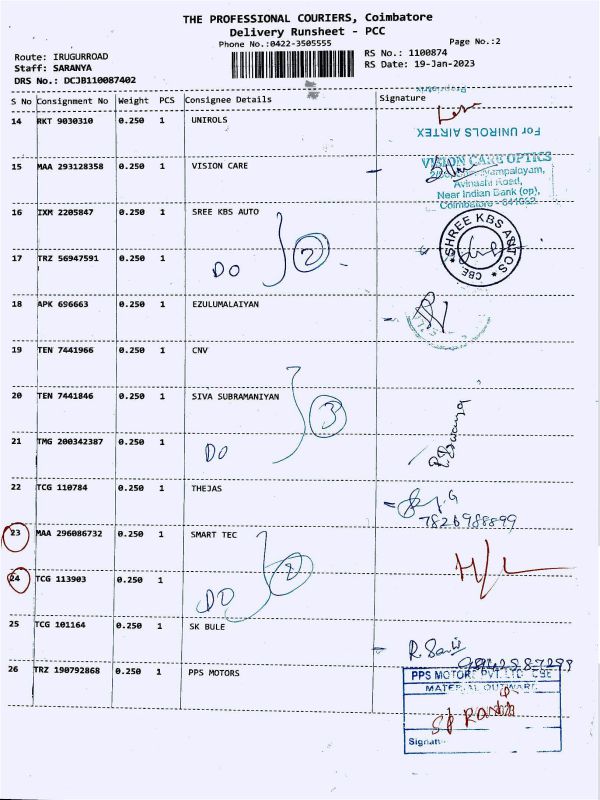 THE PROFESSIONAL COURIERS, Coimbatore
Delivery Runsheet - PCC
Phone No.:0422-3505555
Page No.:2
Route: IRUGURROAD
Staff: SARANYA
DRS No.: DCJB110087402
RS No.: 1100874
RS Date: 19-Jan-2023
S No Consignment No Weight PCS Consignee Details Signature
14 RKT 9030310 0.250 1 UNIROLS
For UNIROLS AIRTEX
15 MAA 293128358 0.250 1 VISION CARE
VISION CARE OPTICS
Avinashi Road,
Near Indian Bank (op),
Coimbatore - 641062
16 IXM 2205847 0.250 1 SREE KBS AUTO
SHREE KBS AUTOS
CBE
17 TRZ 56947591 0.250 1
DO 2
18 APK 696663 0.250 1 EZULUMALAIYAN
19 TEN 7441966 0.250 1 CNV
20 TEN 7441846 0.250 1 SIVA SUBRAMANIYAN
21 TMG 200342387 0.250 1
DO 3
22 TCG 110784 0.250 1 THEJAS
7826988899
23 MAA 296086732 0.250 1 SMART TEC
24 TCG 113903 0.250 1
DO 2
25 TCG 101164 0.250 1 SK BULE
26 TRZ 190792868 0.250 1 PPS MOTORS
PPS MOTORS PVT. LTD CBE
MATERIAL OUTWARD